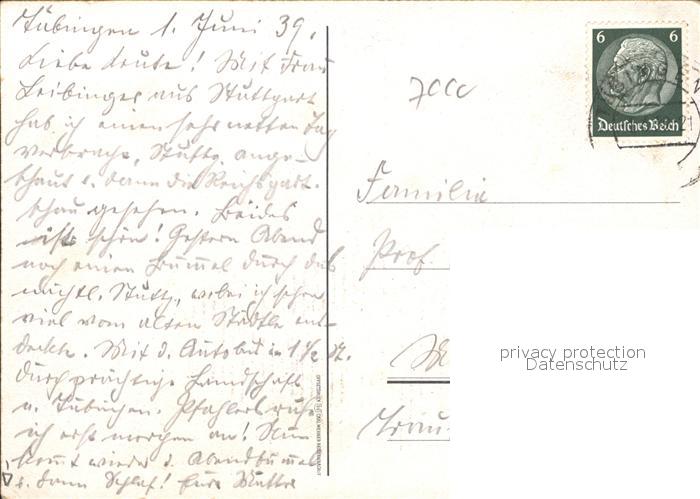 Tübingen 1. Juni 39.
Liebe Leute! Mit Frau
Leibinger aus Stuttgart
hab ich einen sehr netten Tag
verbracht, Stuttg. ange-
schaut u. dann die Reichsgart.
schau gesehen. Beides
ist schön! Gestern Abend
noch einen Bummel durch das
nächtl. Stuttg., wobei ich sehr
viel vom alten Städtle ent-
deckte. Mit d. Autobus in 1 1/2 St.
durch prächtige Landschaft
n. Tübingen. Pfahlers rufe
ich erst morgen an! Nun
kommt wieder d. Abendbummel
u. dann Schlaf! Eure Mutter
6 6
Deutsches Reich
Familie
Prof.
privacy protection
Datenschutz